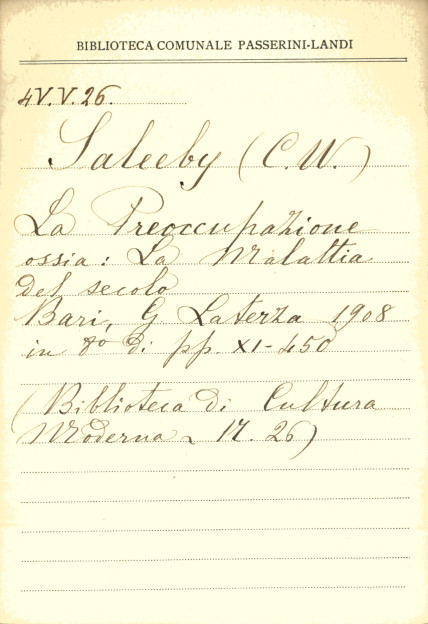 BIBLIOTECA COMUNALE PASSERINI-LANDI
4V.V.26.
Saleeby (C. W.)
La Preoccupazione
ossia: La Malattia
del secolo
Bari, G Laterza 1908
in 8º di pp. XI-450
(Biblioteca di Cultura
Moderna N. 26)